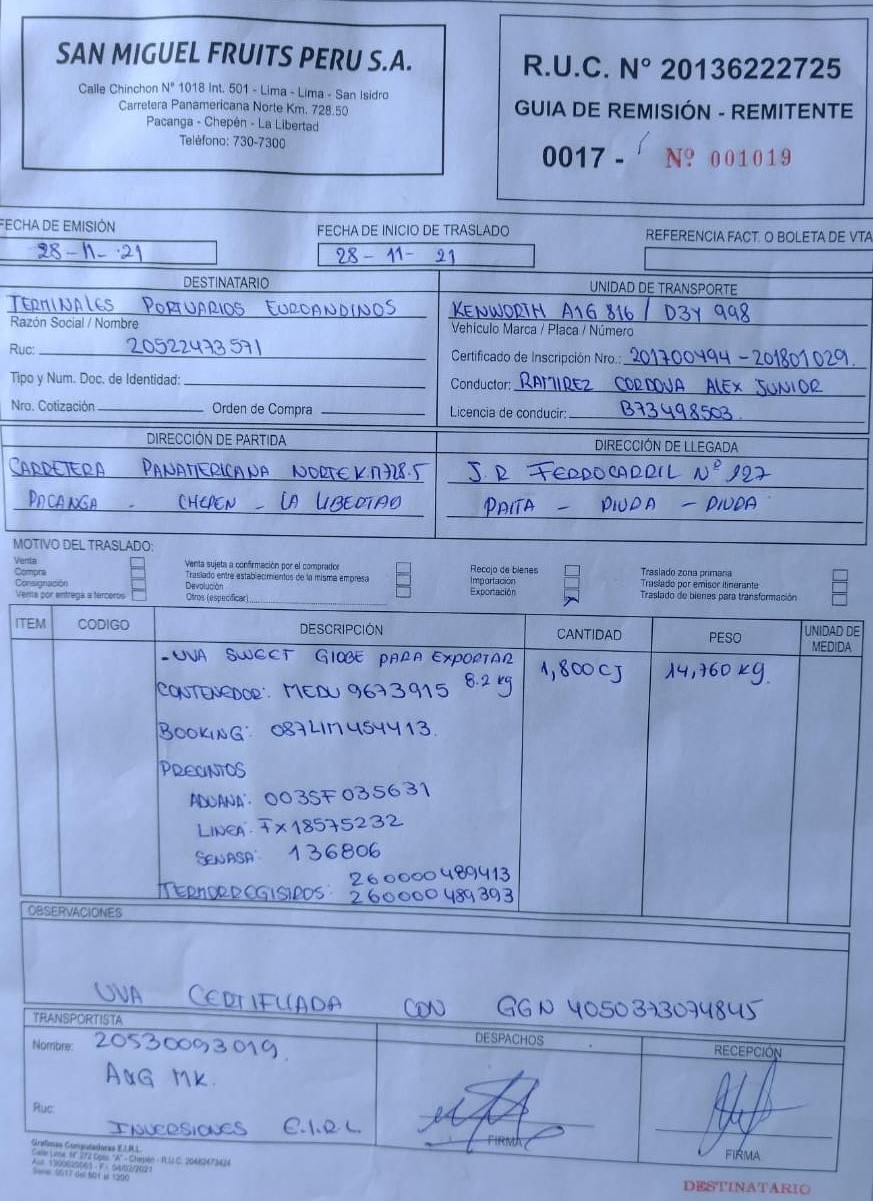 SAN MIGUEL FRUITS PERU S.A.
Calle Chinchon N° 1018 Int. 501 - Lima - Lima - San Isidro
Carretera Panamericana Norte Km. 728.50
Pacanga - Chepén - La Libertad
Teléfono: 730-7300
R.U.C. N° 20136222725
GUIA DE REMISIÓN - REMITENTE
0017 - Nº 001019
FECHA DE EMISIÓN
28-11-21
FECHA DE INICIO DE TRASLADO
28-11-21
REFERENCIA FACT. O BOLETA DE VTA
DESTINATARIO
TERMINALES PORTUARIOS EUROANDINOS
Razón Social / Nombre
Ruc: 20522473571
Tipo y Num. Doc. de Identidad:
Nro. Cotización Orden de Compra
UNIDAD DE TRANSPORTE
KENWORTH A1G 816 / D3Y 998
Vehiculo Marca / Placa / Número
Certificado de Inscripción Nro.: 201700494 - 201801029.
Conductor: RAMIREZ CORDOVA ALEX JUNIOR
Licencia de conducir: B73498503
DIRECCIÓN DE PARTIDA
CARRETERA PANAMERICANA NORTE K.M 728.5
PACANGA - CHEPEN - LA LIBERTAD
DIRECCIÓN DE LLEGADA
J.R FERROCARRIL Nº 127
PAITA - PIURA - PIURA
MOTIVO DEL TRASLADO:
Venta
Compra
Consignación
Venta por entrega a terceros
Venta sujeta a confirmación por el comprador
Traslado entre establecimientos de la misma empresa
Devolución
Otros (especificar)
Recojo de bienes
Importación
Exportación
Traslado zona primaria
Traslado por emisor itinerante
Traslado de bienes para transformación
ITEM CODIGO DESCRIPCIÓN CANTIDAD PESO UNIDAD DE MEDIDA
- UVA SWEET GLOBE PARA EXPORTAR 8.2 kg 1,800 CJ 14,760 kg.
CONTENEDOR: MEDU 9673915
BOOKING: 087LIM454413.
PRECINTOS
ADUANA: 003SF035631
LINEA: FX18575232
SENASA: 136806
TERMORREGISTROS: 260000489413
260000489393
OBSERVACIONES
UVA CERTIFICADA CON GGN 4050373074845
TRANSPORTISTA
Nombre: 20530093019.
A&G MK.
Ruc:
INVERSIONES E.I.R.L
DESPACHOS
FIRMA
RECEPCIÓN
FIRMA
Calle Lima N° 272 Dpto. "A" - Chepén - R.U.C. 20482473424
Serie: 0017 del 801 al 1200
DESTINATARIO